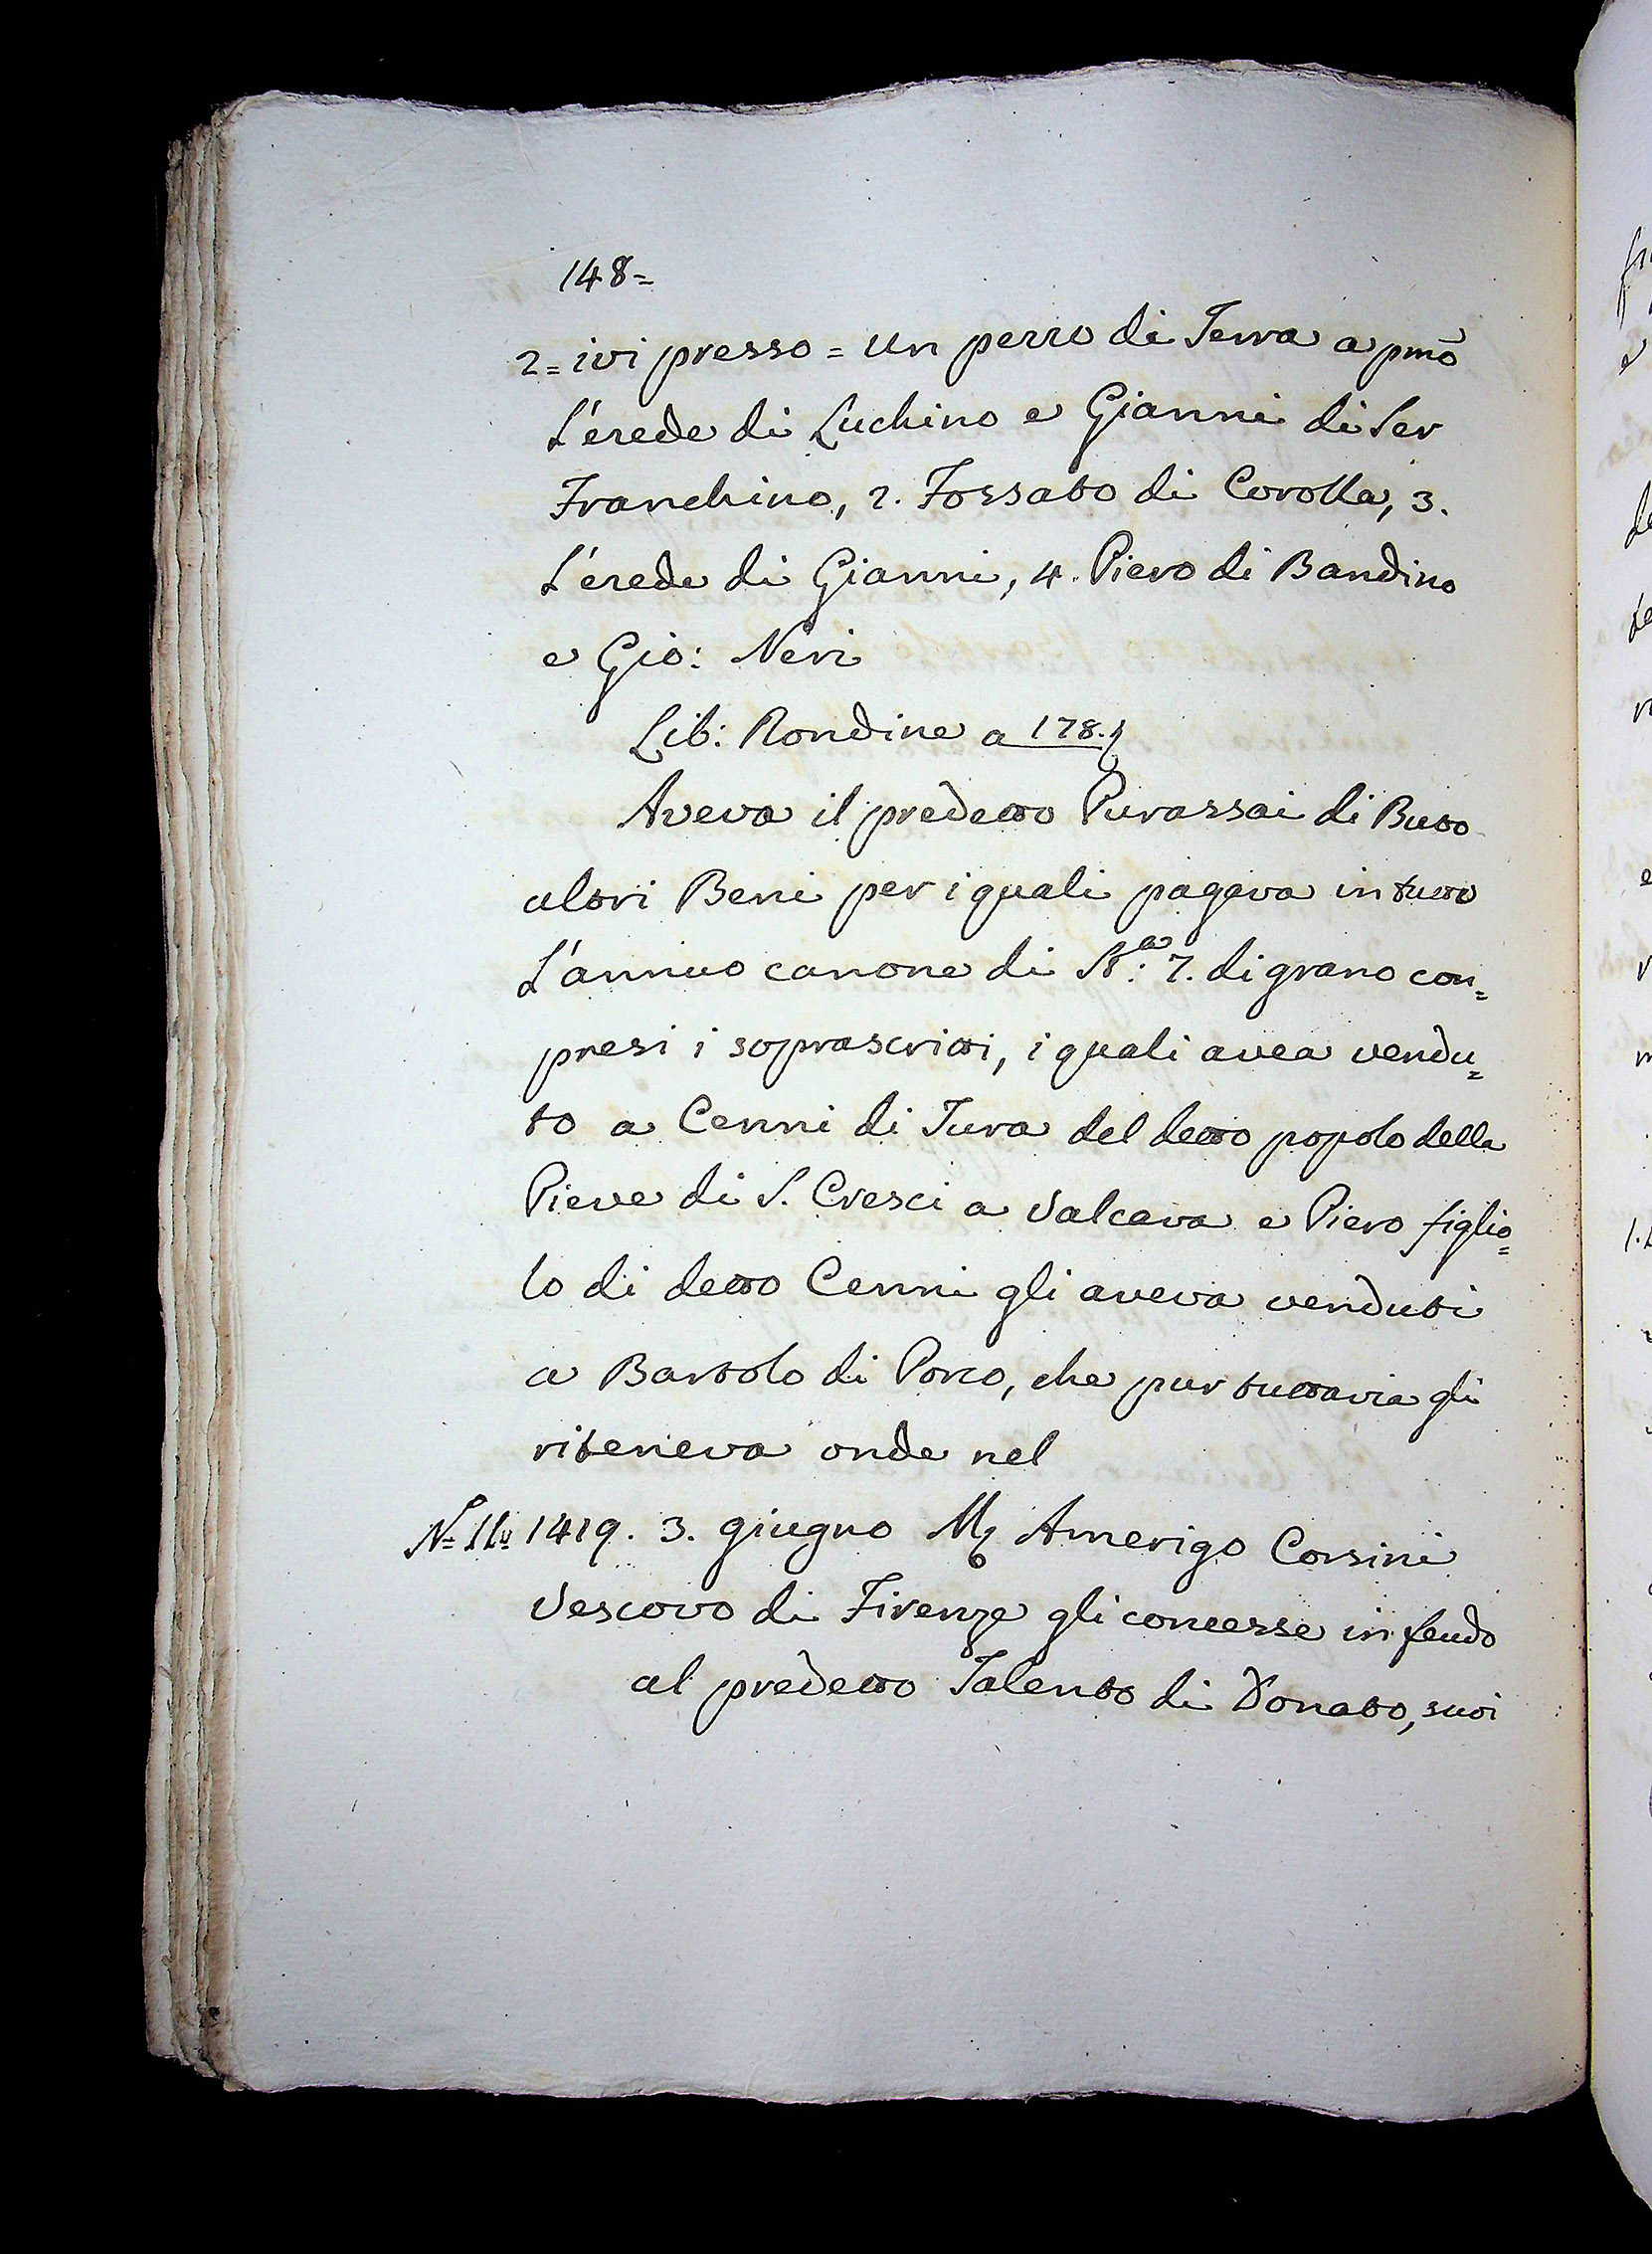 148=
2= ivi presso = un pezzo di Terra a pmõ
L'erede di Luchino e Gianni di Ser
Franchino, 2. Fossato di Corolla, 3.
L'erede di Gianni, 4. Piero di Bandino
e Gio: Neri
Lib: Rondine a 178.
Aveva il predetto Purassai di Buto
altri Beni per i quali pagava in tutto
L'annuo canone di St.ª: 7. di grano con=
presi i soprascritti, i quali avea vendu=
to a Cenni di Tura del detto popolo della
Pieve di S. Cresci a Valcava e Piero figlio=
lo di detto Cenni gli aveva venduti
a Bartolo di Porco, che pur tuttavia gli
riteneva onde nel
1419. 3. giugno M. Amerigo Corsini
Vescovo di Firenze gli concesse in feudo
al predetto Talento di Donato, suoi